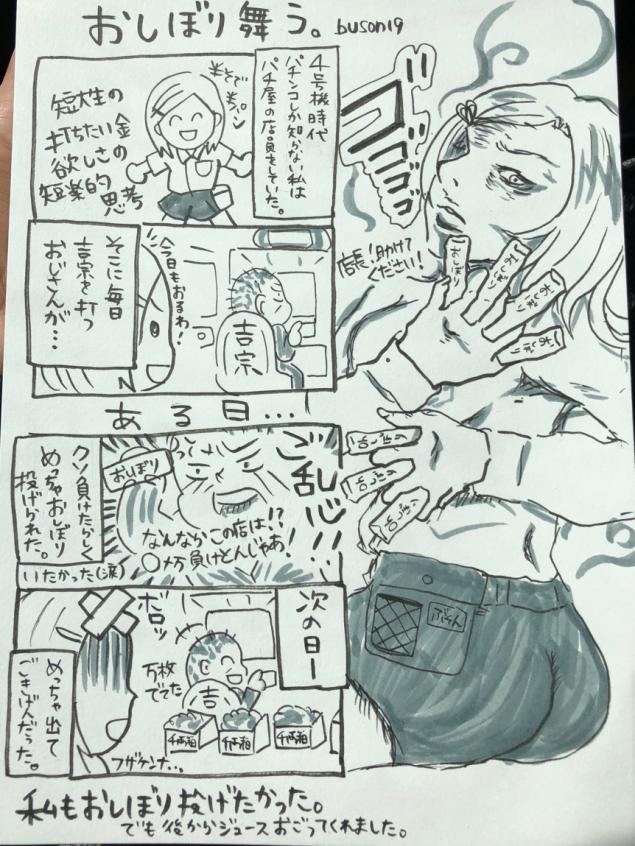 おしぼり舞う。
buson19
4号機時代
パチンコしか知らない私は
パチ屋の店員をしていた。
短大生の
打ちたい金
欲しさの
短楽的
思考
そこに毎日
吉宗を打つ
おじさんが…
今日もおるわ!
吉宗
ある日…
クソ負けたらしく
めっちゃおしぼり
投げられた。
いたかった(涙)
おしぼり
ご乱心!!
なんならこの店は!?
〇万負けとんじゃあ!
次の日ー
ボロッ
万枚
でてた
吉
千両箱
千両箱
千両箱
フザケンナ…。
めっちゃ出て
ごきげんだった。
ゴゴゴゴゴ
店長!助けて
ください!
おしぼり
おしぼり
おしぼり
おしぼり
ぶそん
私もおしぼり投げたかった。
でも後からジュースおごってくれました。